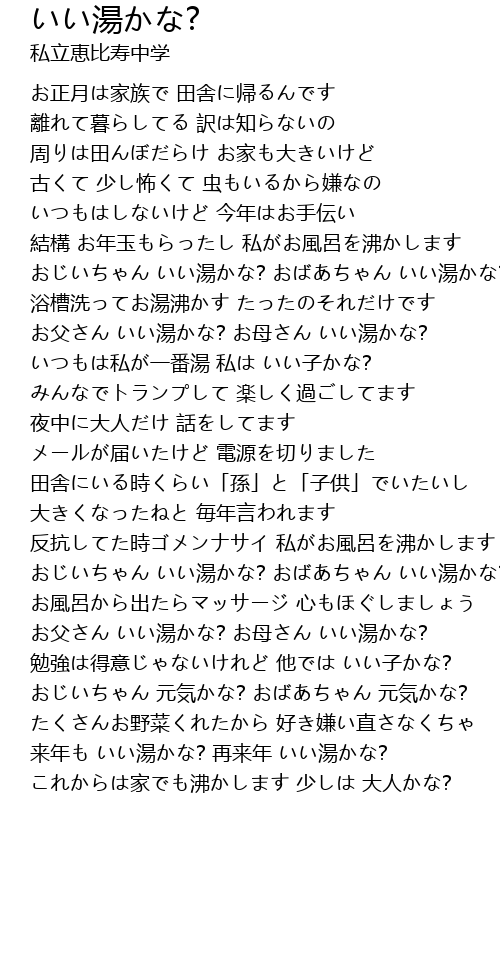 いい湯かな?
私立恵比寿中学
お正月は家族で 田舎に帰るんです
離れて暮らしてる 訳は知らないの
周りは田んぼだらけ お家も大きいけど
古くて 少し怖くて 虫もいるから嫌なの
いつもはしないけど 今年はお手伝い
結構 お年玉もらったし 私がお風呂を沸かします
おじいちゃん いい湯かな? おばあちゃん いい湯かな?
浴槽洗ってお湯沸かす たったのそれだけです
お父さん いい湯かな? お母さん いい湯かな?
いつもは私が一番湯 私は いい子かな?
みんなでトランプして 楽しく過ごしてます
夜中に大人だけ 話をしてます
メールが届いたけど 電源を切りました
田舎にいる時くらい「孫」と「子供」でいたいし
大きくなったねと 毎年言われます
反抗してた時ゴメンナサイ 私がお風呂を沸かします
おじいちゃん いい湯かな? おばあちゃん いい湯かな?
お風呂から出たらマッサージ 心もほぐしましょう
お父さん いい湯かな? お母さん いい湯かな?
勉強は得意じゃないけれど 他では いい子かな?
おじいちゃん 元気かな? おばあちゃん 元気かな?
たくさんお野菜くれたから 好き嫌い直さなくちゃ
来年も いい湯かな? 再来年 いい湯かな?
これからは家でも沸かします 少しは 大人かな?